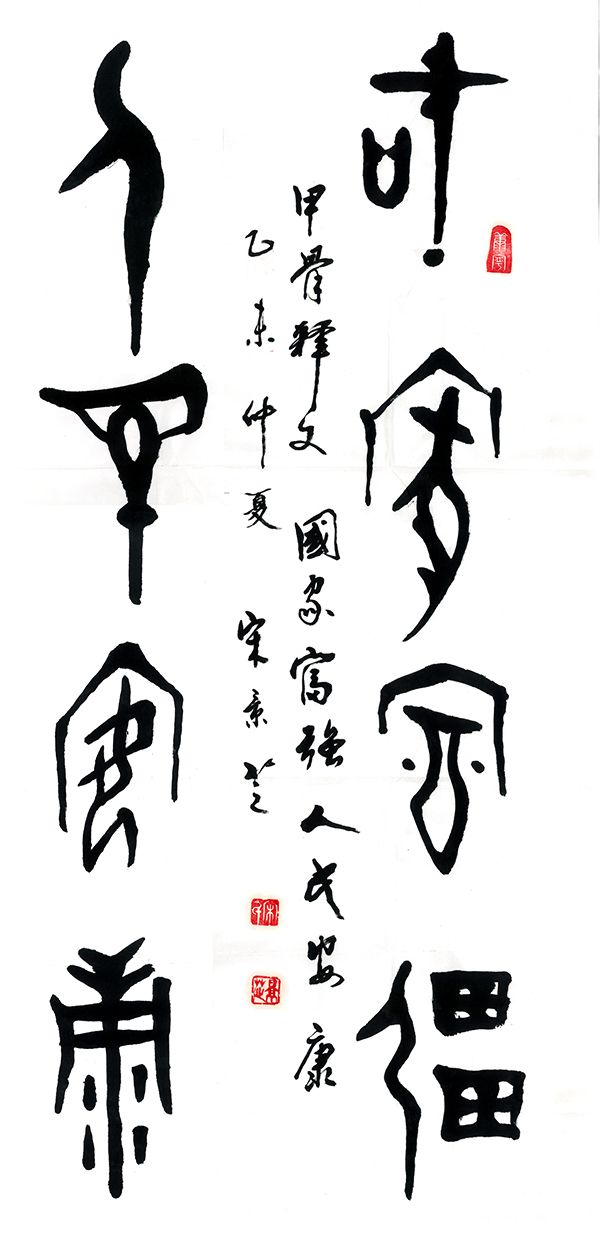 國家富強
甲骨釋文 國家富強 人民安康
乙未 仲夏 宋景芝
人民安康